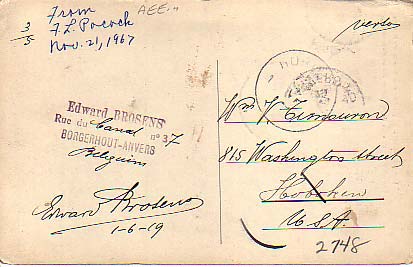 From AEE
F.L. Pocock
Nov. 21, 1967
3/5
verso
Edward BROSENS
Rue du Canal n° 37
BORGERHOUT-ANVERS
Belguim
Edward Brosens
1-6-19
Wm V
815 Washington Street
Hoboken
U.S.A.
2748